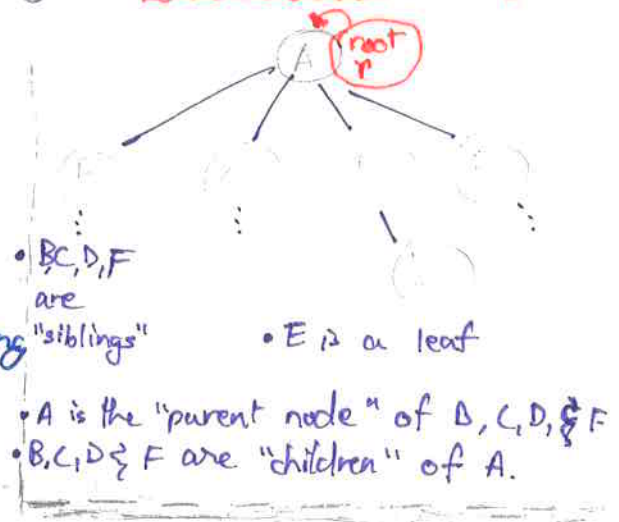 root
A
r
• B,C,D,F
are
"siblings"
• E is a leaf
• A is the "parent node" of B, C, D, & F
• B, C, D & F are "children" of A.